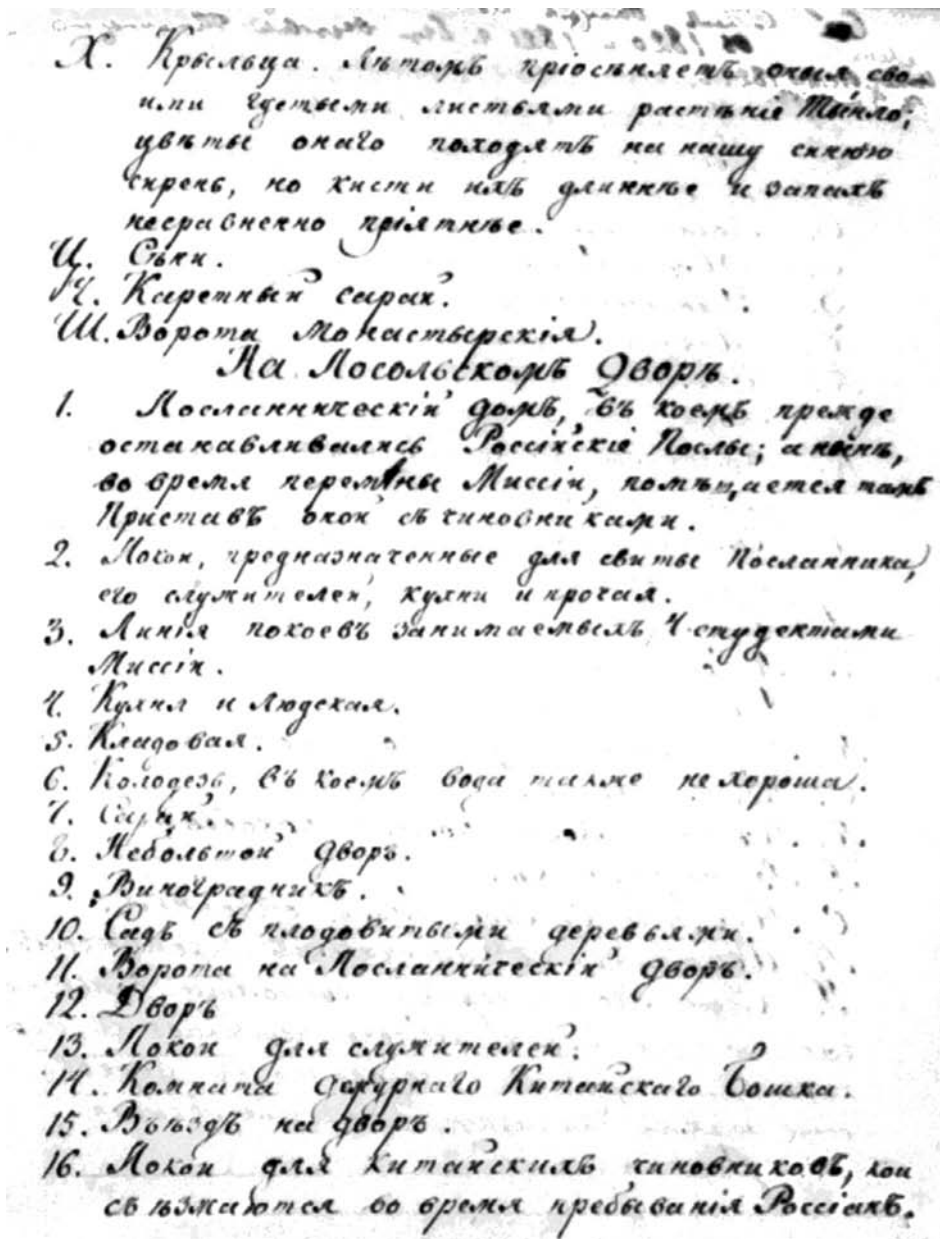 Х. Крыльца. Лѣтомъ пріосѣняетъ оныя сво
ими густыми листьями растѣніе Тынло;
цвѣты онаго походятъ на нашу синюю
сирень, но кисти ихъ длиннѣе и запахъ
несравненно пріятнѣе.
Ц. Сѣни.
Ч. Каретный сарай.
Ш. Ворота Монастырскія.
На Посольскомъ Дворѣ.
1. Посланническій домъ, въ коемъ прежде
останавливались Россійскіе Послы; а нынѣ,
во время перемѣны Миссіи, помѣщается тамъ
Приставъ оной съ чиновниками.
2. Покои, предназначенные для свиты Посланника,
его служителей, кухни и прочая.
3. Линія покоевъ занимаемыхъ 4 студентами
Миссіи.
4. Кухня и людская.
5. Кладовая.
6. Колодезь, въ коемъ вода также не хороша.
7. Сарай.
8. Небольшой дворъ.
9. Виноградникъ.
10. Садъ съ плодовитыми деревьями.
11. Ворота на Посланническій дворъ.
12. Дворъ
13. Покои для служителей.
14. Комната дежурнаго Китайскаго Бошка.
15. Въѣздъ на дворъ.
16. Покои для китайскихъ чиновниковъ, кои
съѣзжаются во время пребыванія Россіянъ.